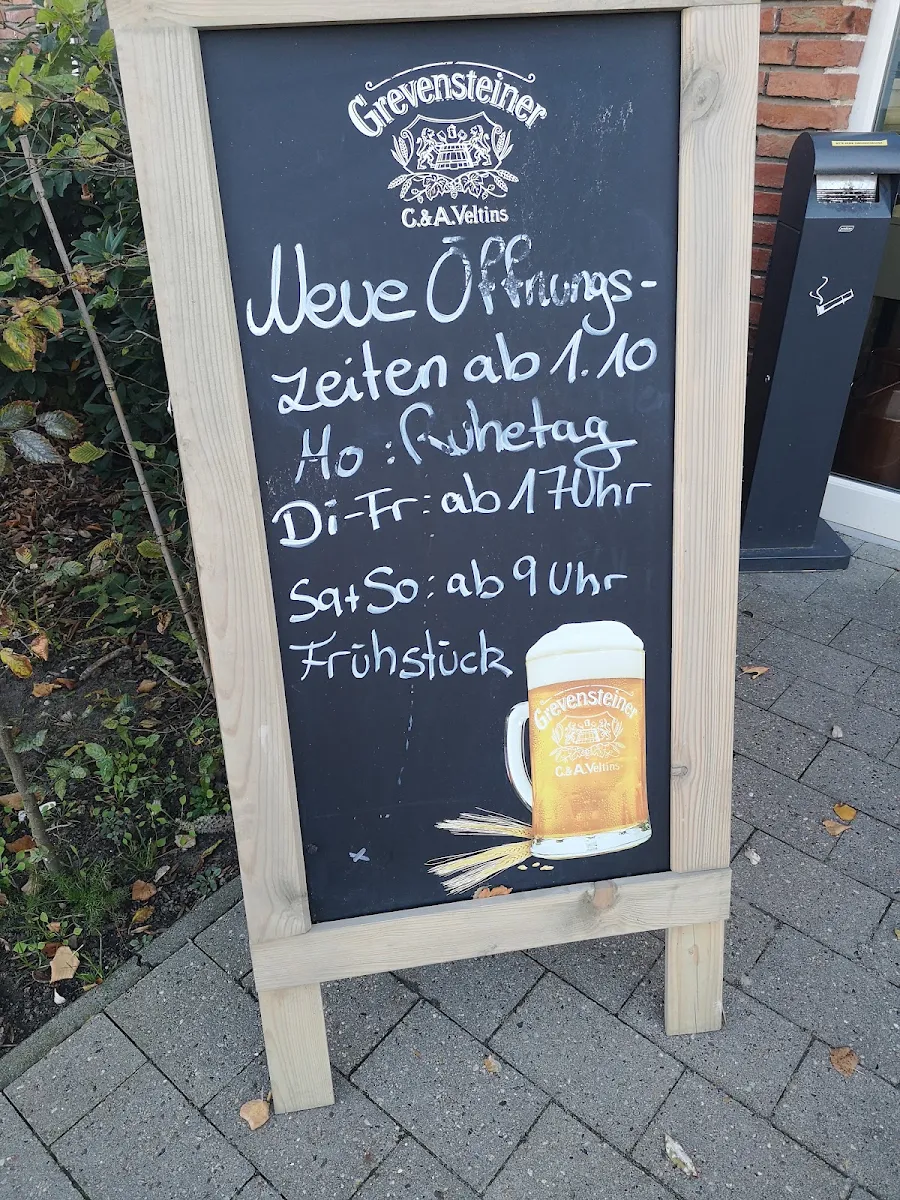 Grevensteiner
C. & A. Veltins
Neue Öffnungs-
zeiten ab 1.10
Mo : Ruhetag
Di-Fr: ab 17 Uhr
Sa+So: ab 9 Uhr
Frühstück
Grevensteiner
C. & A. Veltins